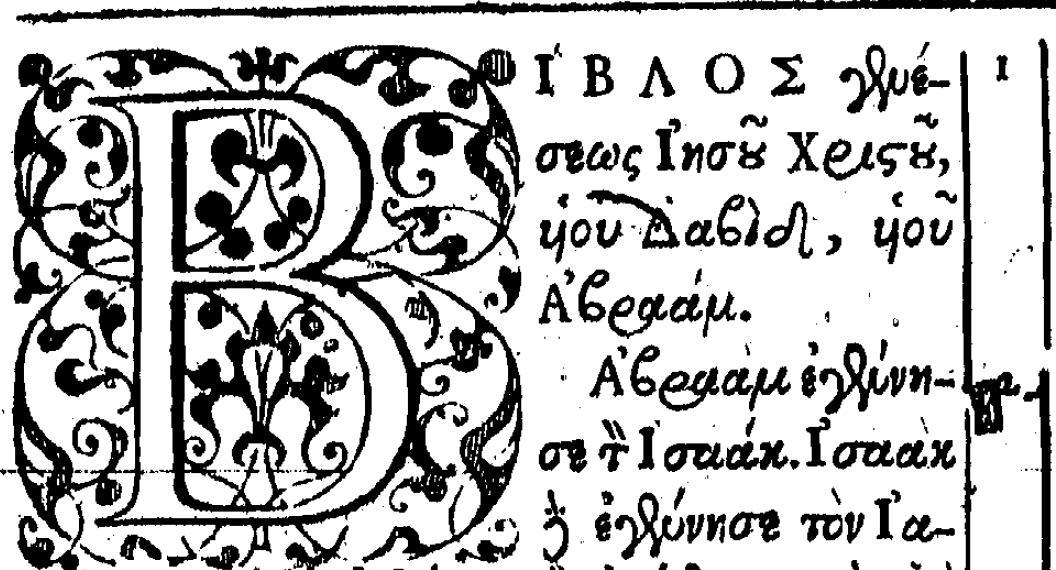 ΒΙΒΛΟΣ γενέ- 1
σεως Ἰησοῦ Χριστοῦ,
ὑιοῦ Δαβὶδ, ὑιοῦ
Ἀβραάμ.
Ἀβραὰμ ἐγέννη- 2
σε τὸν Ἰσαάκ. Ἰσαὰκ
δὲ ἐγέννησε τὸν Ἰα-